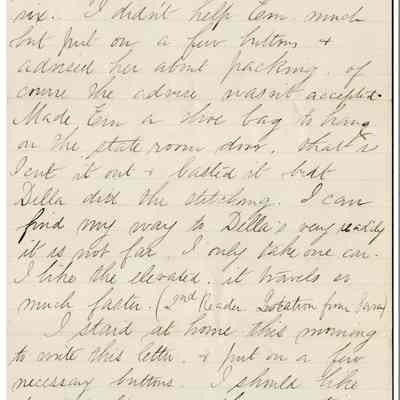 six. I didn't help Em much
but put on a few buttons &
advised her about packing. of
course the advise wasn't accepted.
Made Em a shoe bag to hang
on the state room door. that is
I cut it out & basted it but
Della did the stitching. I can
find my way to Della's very readily
it is not far. I only take one car.
I like the elevated. it travels so
much faster. (2nd Reader. Location from
I staid at home this morning
to write this letter. & put on a few
necessary buttons. I should like